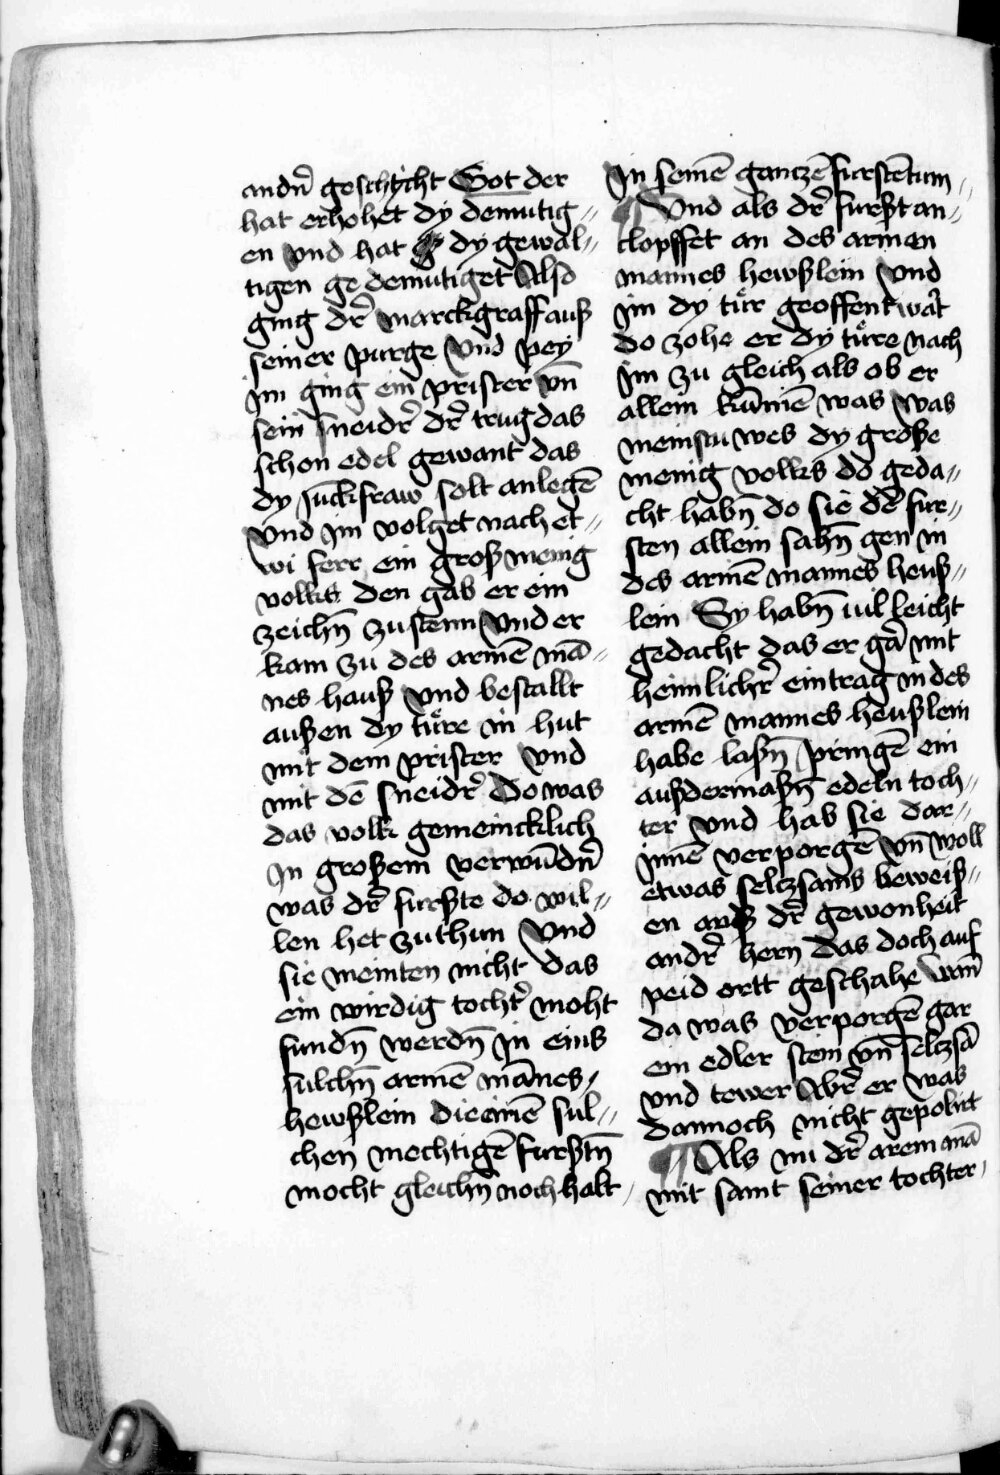 andn̄ geschicht Got der
hat erhohet dy demutig=
en vnd hat dy gewal=
tigen gedemutiget Also
ging dr̄ marckgraff auß
seiner purge Vnd pey
jm ging ein prister vn̄
sein sneidr̄ dr̄ trug das
schon edel gewant das
dy Junckfraw solt anlegē
Vnd jm volget nach et=
wi ferr ein groß menig
volks den gab er ein
zeichn̄ zu stenn Vnd er
kam zu des armē mā=
nes hauß Vnd bestallt
außen dy türe in hut
mit dem prister Vnd
mit dē sneidr̄ Do was
das volk gemeincklich
Jn großem verwūdn̄
was dr̄ furste do wil=
len het zuthun Vnd
sie meinten nicht das
ein wirdig tocht̄ moht
fundn̄ werdn̄ jn eins
sulchn̄ armē mānes
hewßlein die einē sul=
chen mechtigē furstn̄
mocht gleichn̄ noch halt
Jn seinē ganczē furstētum
¶ Vnd als dr̄ furst an=
clopffet an des arman
mannes hewßlein Vnd
jm dy tür geoffent wart
do zohe er dy türe nach
jm zu gleich als ob er
allein kūmē was Was
meinstu wes dy große
menig volks do geda=
cht habn̄ do sie dē fur=
sten allein sahn̄ gen in
des armē mannes heuß=
lein Sy habn̄ uil leicht
gedacht das er gā mit
heimlichr̄ eintrag in des
armē mannes heußlein
habe laßn̄ pringē ein
außdermaßn̄ edeln toch=
ter Vnd hab sie dar=
jnnē verporgē vn̄ woll
etwas selczsams beweiß=
en auß dr̄ gewonheit
andr̄ hern Das doch auf
peid ortt geschahe Wan̄
da was verporgē gar
ein edler stein vn̄ selczsā
vnd tewer Abr̄ er was
dannoch nicht gepolirt
¶ Als nu dr̄ arem mā
mit samt seiner tochter